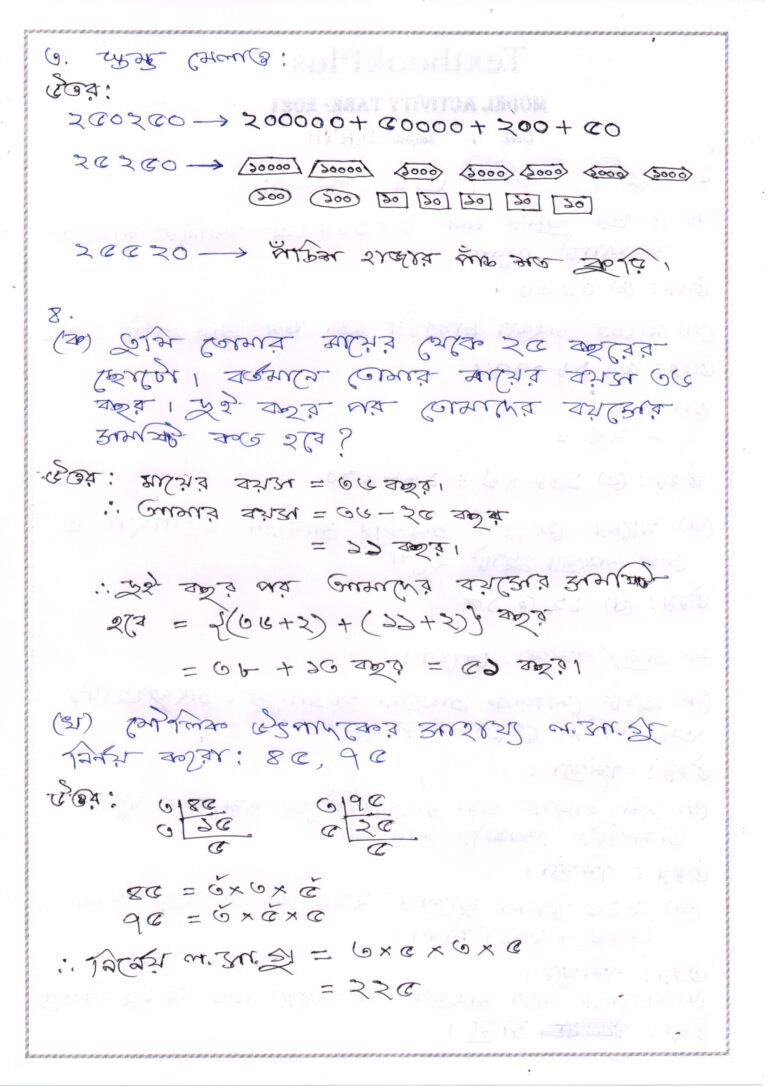 ৩. স্তম্ভ মেলাও :
উত্তর :
২৫০২৫০ → ২০০০০০ + ৫০০০০ + ২০০ + ৫০
২৫২৫০ → ১০০০০ ১০০০০ ১০০০ ১০০০ ১০০০ ১০০০ ১০০০
১০০ ১০০ ১০ ১০ ১০ ১০ ১০
২৫৫২০ → পঁচিশ হাজার পাঁচ শত কুড়ি।
৪.
(ক) তুমি তোমার মায়ের থেকে ২৫ বছরের
ছোটো। বর্তমানে তোমার মায়ের বয়স ৩৬
বছর। দুই বছর পর তোমাদের বয়সের
সমষ্টি কত হবে?
উত্তর : মায়ের বয়স = ৩৬ বছর।
∴ আমার বয়স = ৩৬ - ২৫ বছর
= ১১ বছর।
∴ দুই বছর পর আমাদের বয়সের সমষ্টি
হবে = {(৩৬+২) + (১১+২)} বছর
= ৩৮ + ১৩ বছর = ৫১ বছর।
(খ) মৌলিক উৎপাদকের সাহায্যে ল.সা.গু
নির্ণয় করো : ৪৫, ৭৫
উত্তর : ৩ ৪৫ ৩ ৭৫
৩ ১৫ ৫ ২৫
৫ ৫
৪৫ = ৩ × ৩ × ৫
৭৫ = ৩ × ৫ × ৫
∴ নির্নেয় ল.সা.গু = ৩ × ৫ × ৩ × ৫
= ২২৫